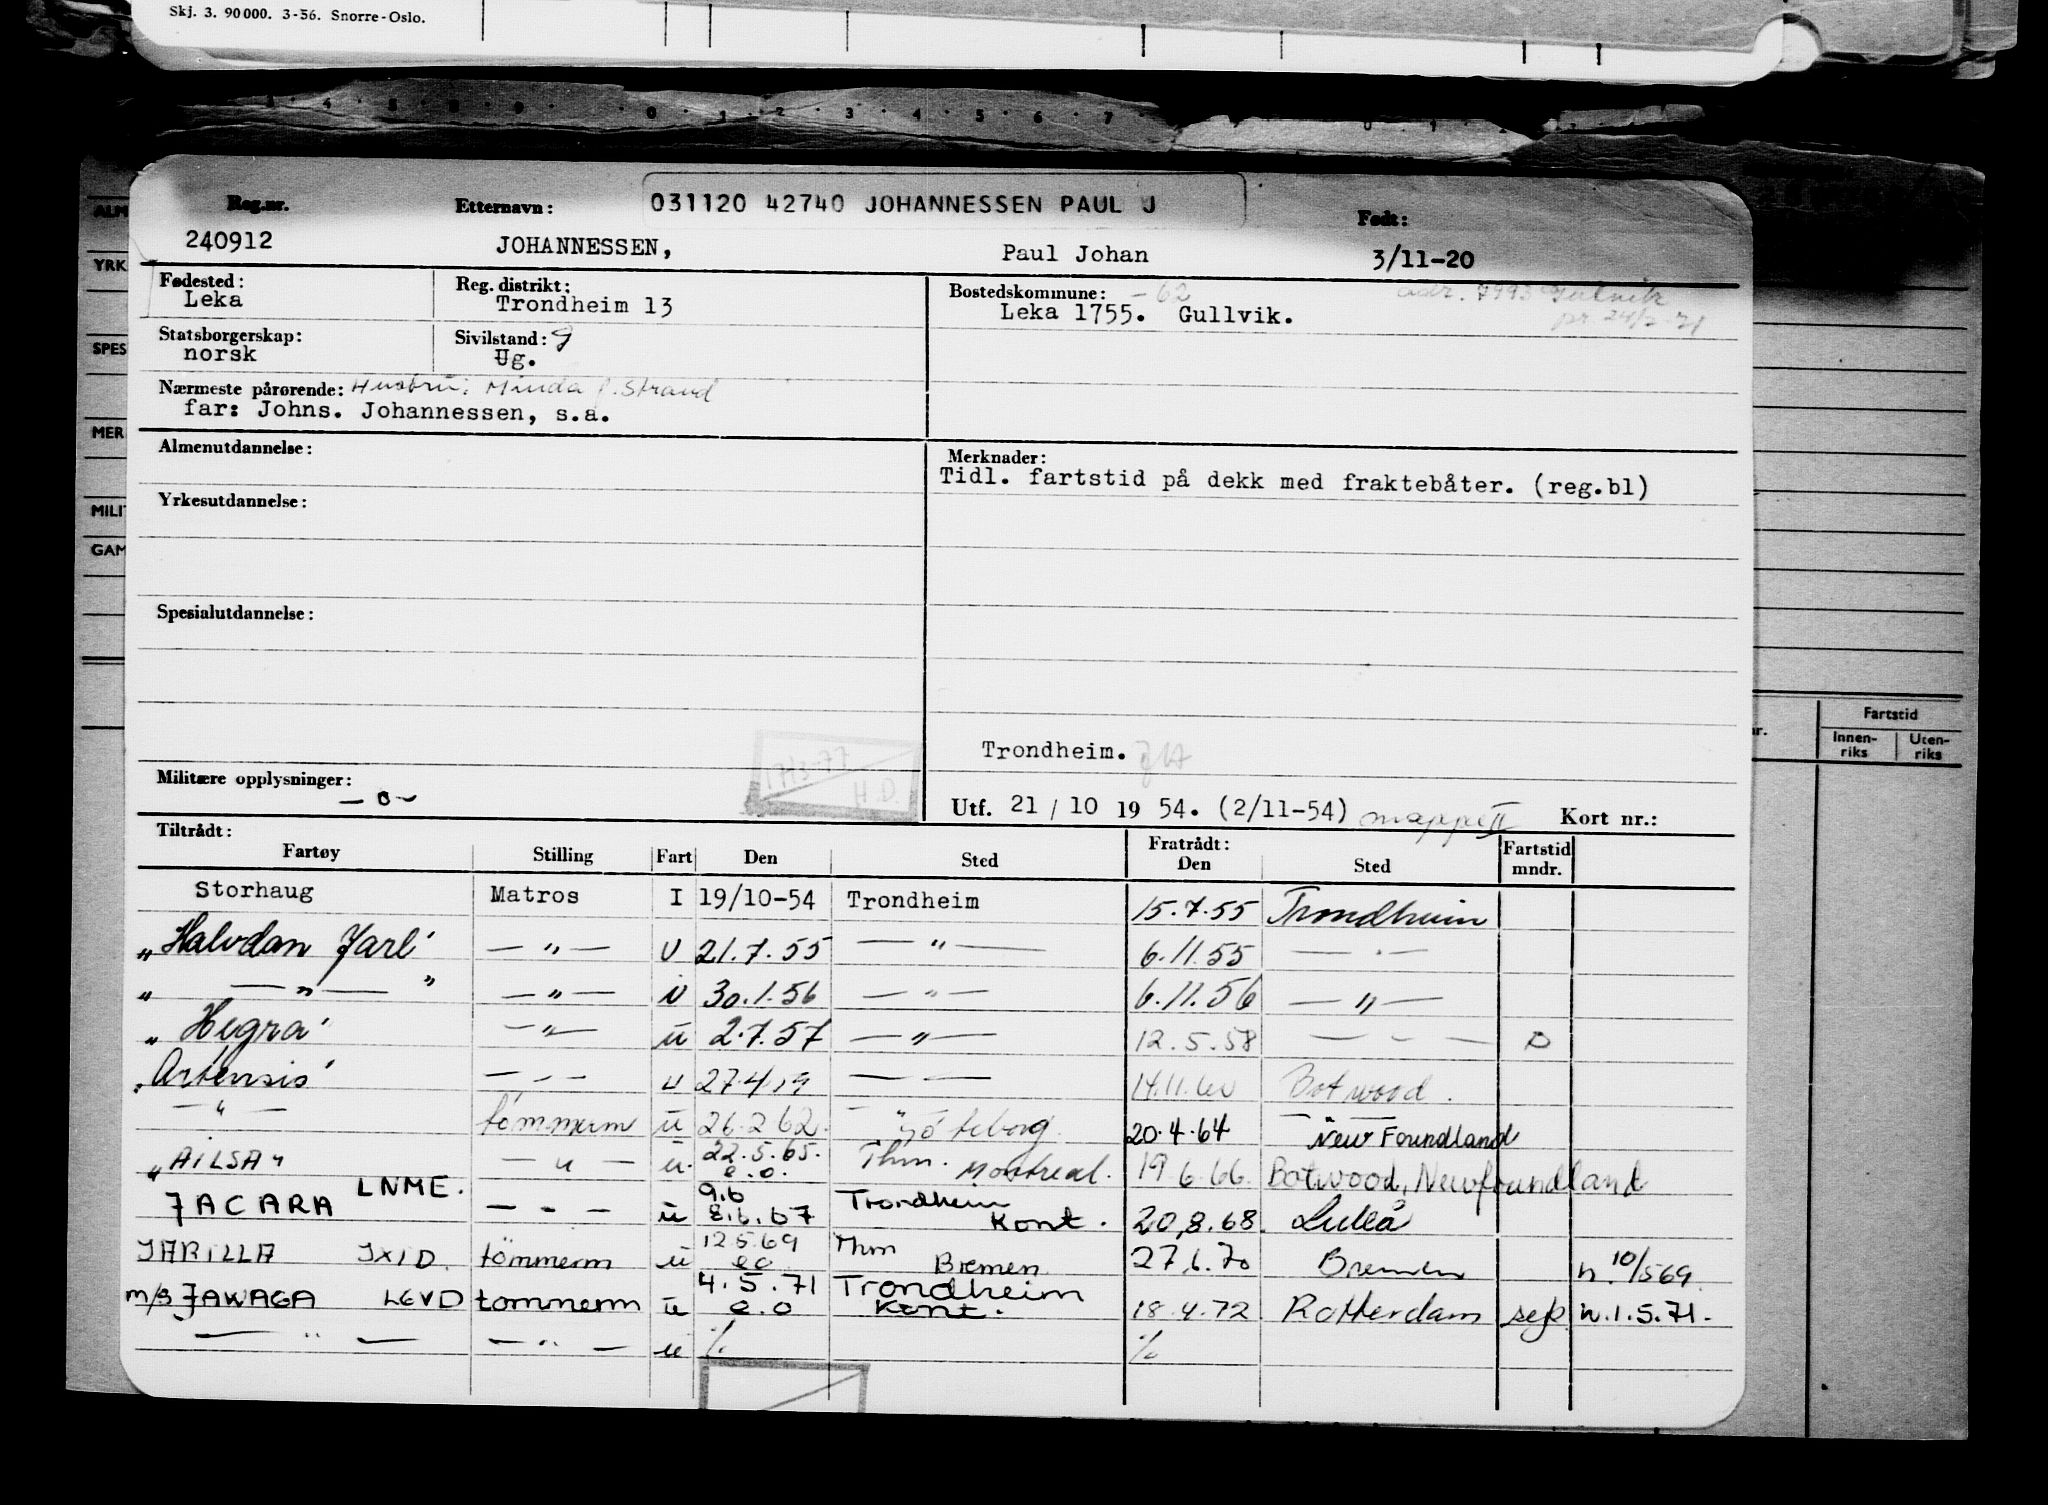 Skj. 3. 90000. 3-56. Snorre-Oslo.
Reg.nr. Etternavn: 031120 42740 JOHANNESSEN PAUL J Født:
240912 JOHANNESSEN, Paul Johan 3/11-20
Fødested: Reg. distrikt: Bostedskommune: -62
Leka Trondheim 13 Leka 1755. Gullvik.
Statsborgerskap: Sivilstand: g
norsk Ug.
Nærmeste pårørende: Hustru: Minda f. Strand
far: Johns. Johannessen, s.a.
Almenutdannelse: Merknader:
Tidl. fartstid på dekk med fraktebåter. (reg.bl)
Yrkesutdannelse:
Spesialutdannelse:
Trondheim.
17/3-77
H.D.
Militære opplysninger: — o —
Utf. 21 / 10 19 54. (2/11-54) mappe II Kort nr.:
Tiltrådt: Fratrådt: Fartstid
Fartøy Stilling Fart Den Sted Den Sted mndr.
Storhaug Matros I 19/10-54 Trondheim 15.7.55 Trondheim
„Halvdan Jarl" — „ — U 21.7.55 — „ — 6.11.55 — „ —
„ — „ — " — „ — U 30.1.56 — „ — 6.11.56 — „ —
„Hegra" — „ — u 2.7.57 — „ — 12.5.58 — „ —
„Artensis" — „ — u — „ — 14.11.60 Botwood.
— „ — tømmerm u 26.2.62. Göteborg 20.4.64 New Foundland
„AILSA" — „ — u. 22.5.65. e.o. Thm. Montreal. 19.6.66. Botwood, Newfoundland
JACARA LNME. — „ — u 9.6 8.6.67 Trondheim Kont. 20.8.68. Luleå
JARILLA JXID. tömmerm u 12.5.69 eo Thm Bremen 27.6.70 Bremen n. 10/569
m/s JAWAGA LEVD tømmerm u 4.5.71 e.o Trondheim Kont. 18.4.72 Rotterdam n.1.5.71.
— „ — — „ — u ⁒ ⁒
ALM
YRK
SPES
MER
MILIT
GAM
Fartstid
Innen-
riks
Uten-
riks